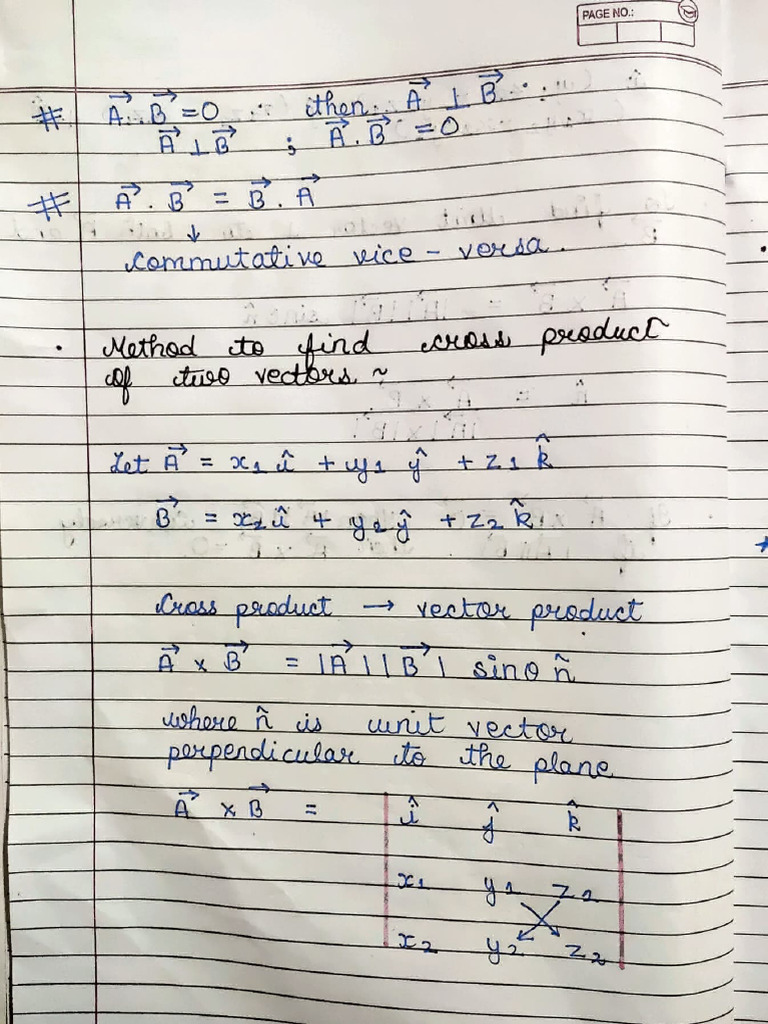 PAGE NO.:
# A⃗ . B⃗ = 0 ∴ then A⃗ ⊥ B⃗
A⃗ ⊥ B⃗ ; A⃗ . B⃗ = 0
# A⃗ . B⃗ = B⃗ . A⃗
↓
commutative vice - versa.
• Method to find cross product
of two vectors ~
Let A⃗ = x1 î + y1 ŷ + z1 k̂
B⃗ = x2 î + y2 ŷ + z2 k̂
Cross product → vector product
A⃗ x B⃗ = |A⃗| |B⃗| sinθ ñ
where ñ is unit vector
perpendicular to the plane
A⃗ x B⃗ = | î ĵ k̂ |
x1 y1 z1
x2 y2 z2